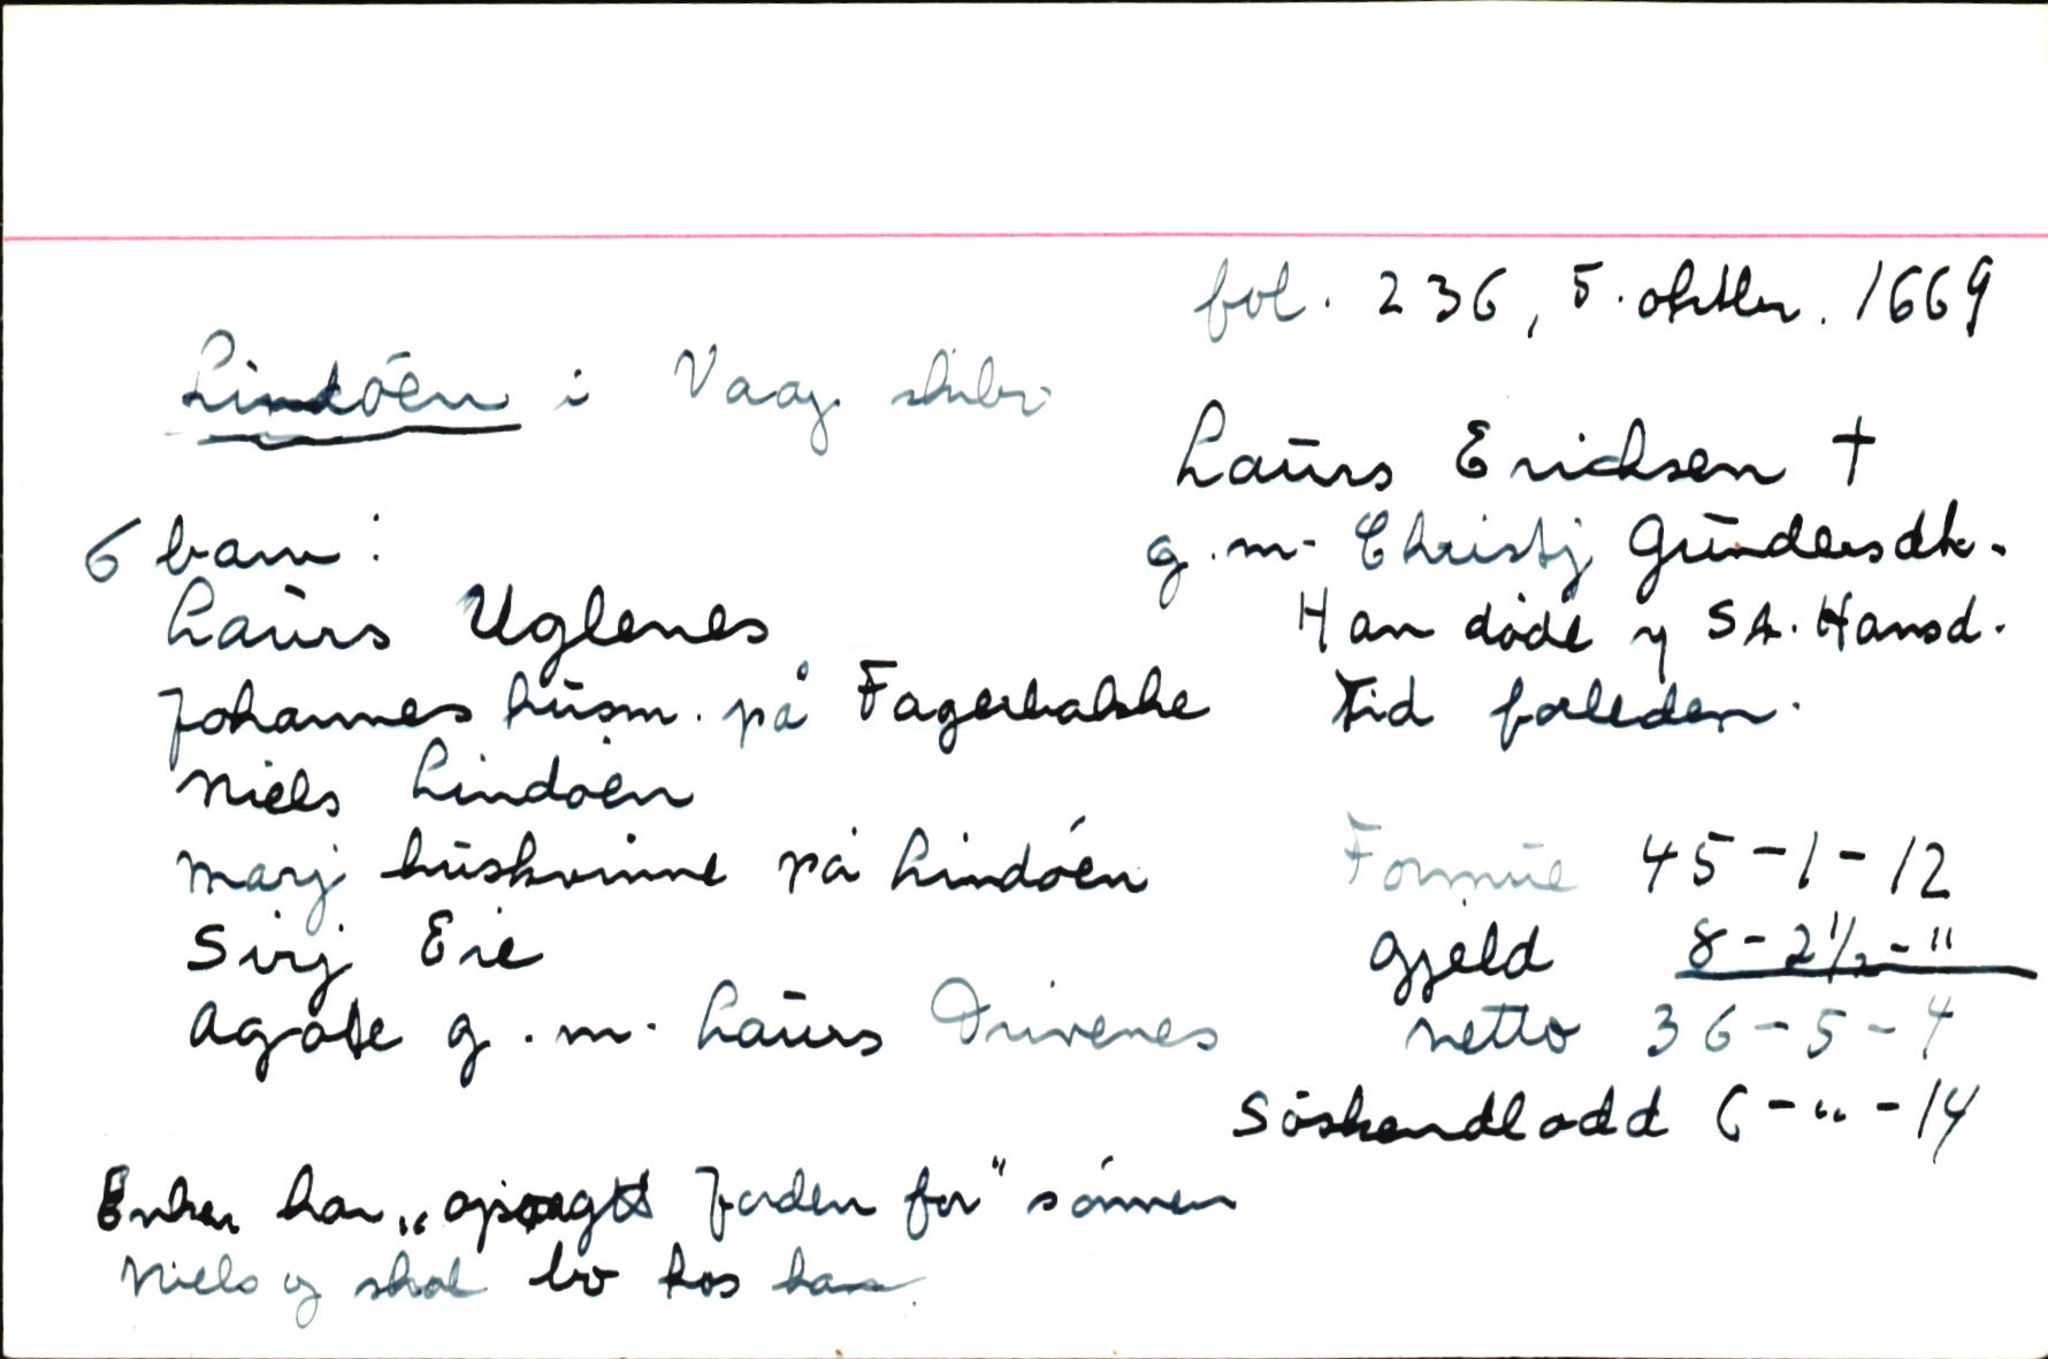 fol. 236, 5. oktbr. 1669
Lindöen i Vaag skibr.
Laurs Ericksen †
g.m. Christj Gundersdtr.
Han döde y St. Hansd.
Tid forleden.
6 barn:
Laurs Uglenes
Johannes husm. på Fagerbakke
Niels Lindöen
Marj huskvinne på Lindöen
Sirj Eie
Agate g.m. Laurs Drivenes
Formue 45-1-12
Gjeld 8-2½-"
netto 36-5-4
Söskendlodd 6-"-14
Enken har „opsagt Jorden for" sönnen
Niels og skal bo hos ham.